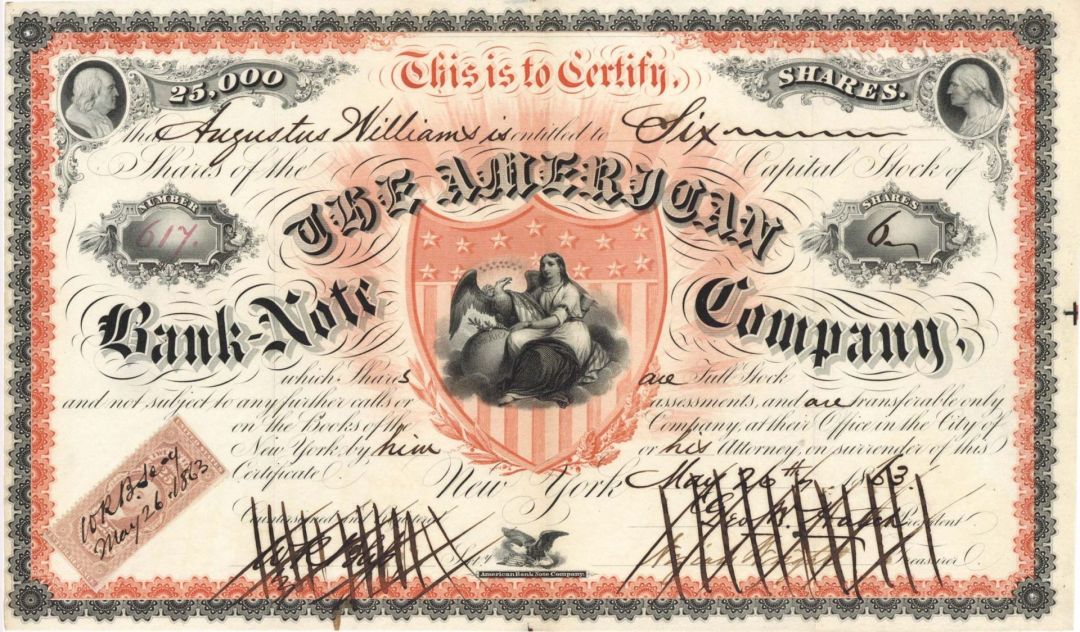 This is to Certify,
25,000 SHARES.
that Augustus Williams is entitled to Six
Shares of the Capital Stock of
THE AMERICAN
NUMBER
617.
SHARES
6
Bank-Note Company,
which Shares are Full Stock
and not subject to any further calls or assessments, and are transferable only
on the Books of the Company, at their Office in the City of
New York, by him or his Attorney, on surrender of this
Certificate.
New York May 26th 1863.
May 26. 1863
Countersigned and
Geo. W. President
Sec'y Treasurer
American Bank Note Company.